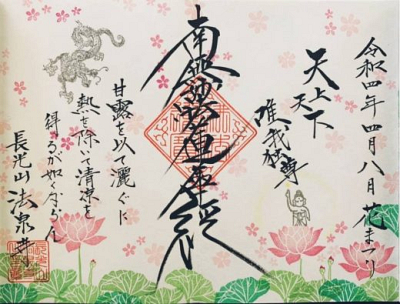 令和四年四月八日 花まつり
天上天下
唯我独尊
南無妙法蓮華経
甘露を以て灑ぐに
熱を除いて清涼を
得るが如くならん
長光山 法泉寺